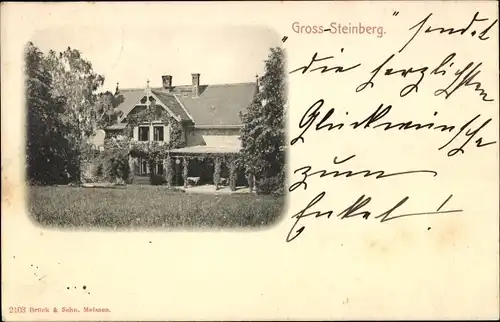 Gross-Steinberg.
" sendet "
die herzlichsten
Glückwünsche
zum
Enkel!
2103 Brück & Sohn, Meissen.